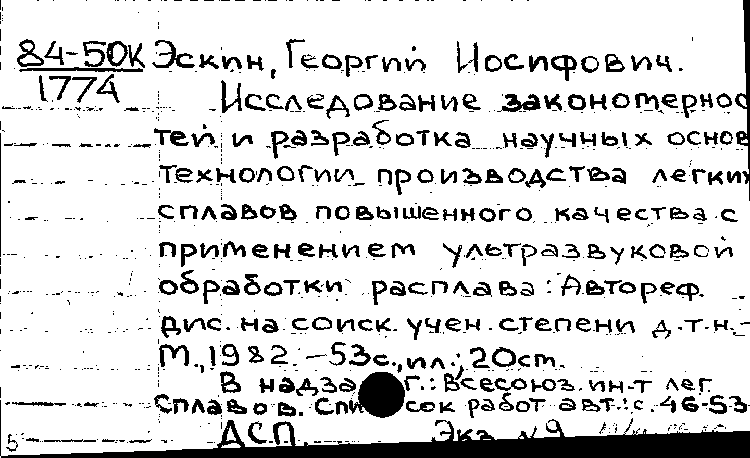 84-50К Эскин, Георгий Иосифович.
1774 Исследование закономернос
тей и разработка научных основ
технологии производства легких
сплавов повышенного качества с
применением ультразвуковой
обработки расплава: Автореф.
дис. на соиск. учен. степени д.т.н.-
М., 1982.-53с., ил.; 20см.
В надзаг.: Всесоюз. ин-т лег.
сплавов. Список работ авт.: с. 46-53
ДСП. Экз. №9
5